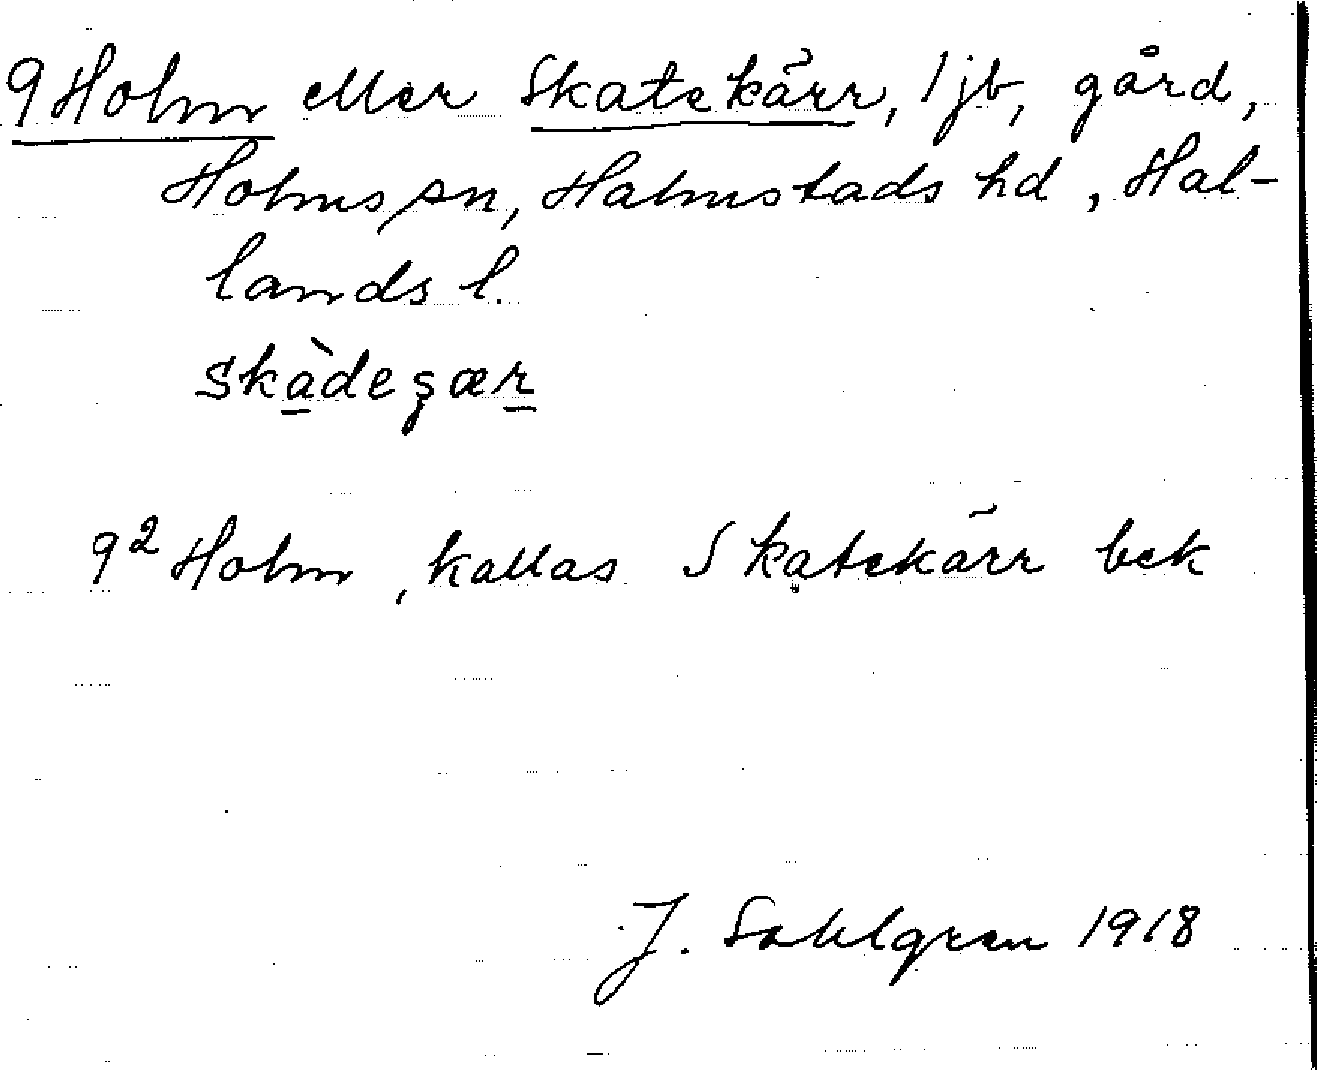 9 Holm eller Skatekärr, 1 jb, gård,
Holms sn, Halmstads hd, Hal-
lands l.
skàdeʂær
9² Holm, kallas Skatekärr bek
J. Sahlgren 1918